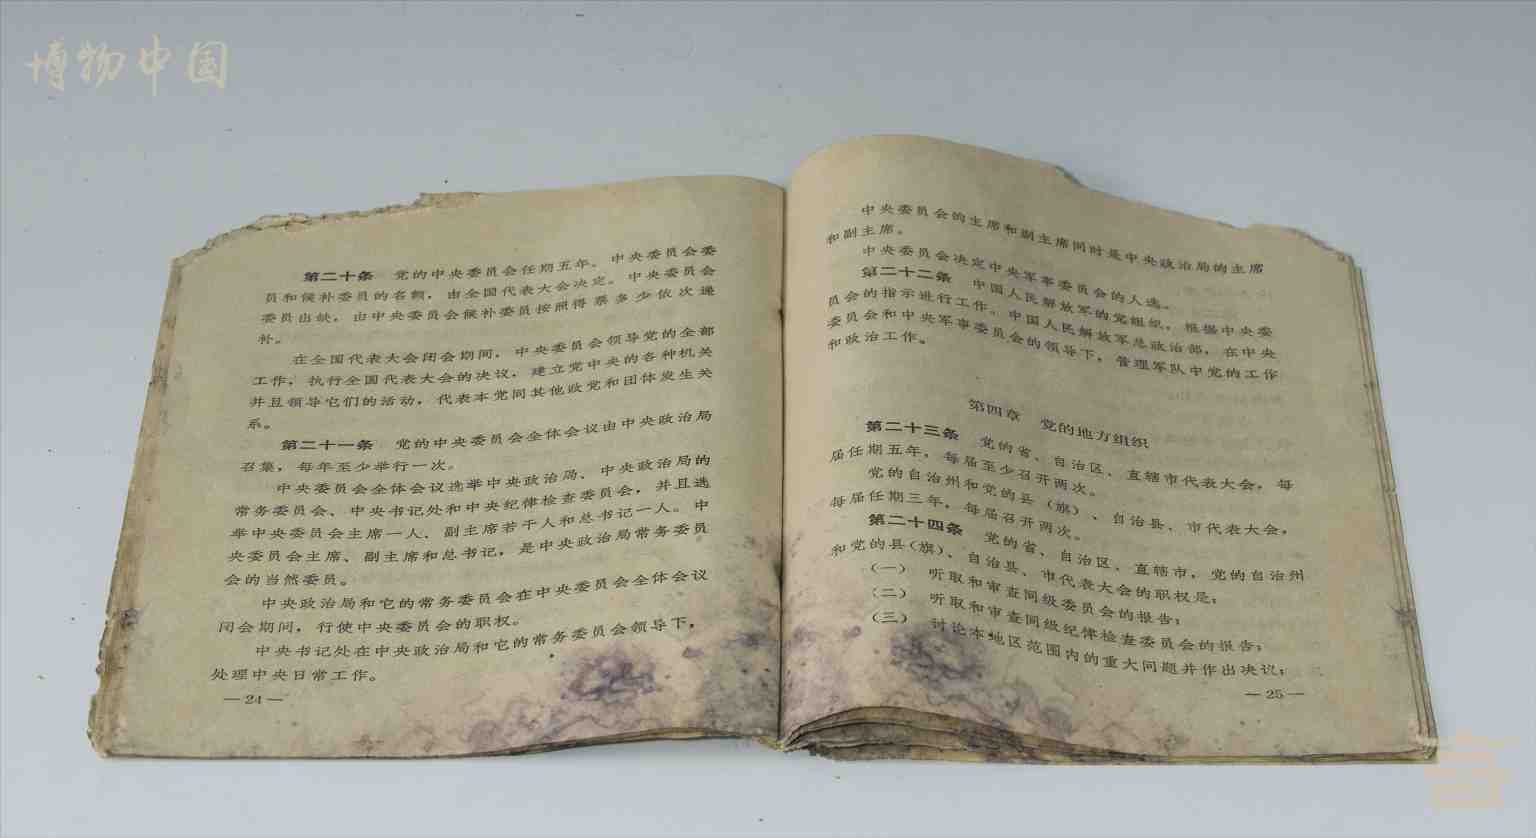 博物中国
第二十条 党的中央委员会任期五年。中央委员会委
员和候补委员的名额，由全国代表大会决定。中央委员会
委员出缺，由中央委员会候补委员按照得票多少依次递
补。
在全国代表大会闭会期间，中央委员会领导党的全部
工作，执行全国代表大会的决议，建立党中央的各种机关
并且领导它们的活动，代表本党同其他政党和团体发生关
系。
第二十一条 党的中央委员会全体会议由中央政治局
召集，每年至少举行一次。
中央委员会全体会议选举中央政治局、中央政治局的
常务委员会、中央书记处和中央纪律检查委员会，并且选
举中央委员会主席一人、副主席若干人和总书记一人。中
央委员会主席、副主席和总书记，是中央政治局常务委员
会的当然委员。
中央政治局和它的常务委员会在中央委员会全体会议
闭会期间，行使中央委员会的职权。
中央书记处在中央政治局和它的常务委员会领导下，
处理中央日常工作。
— 24 —
中央委员会的主席和副主席同时是中央政治局的主席
和副主席。
中央委员会决定中央军事委员会的人选。
第二十二条 中国人民解放军的党组织，根据中央委
员会的指示进行工作。中国人民解放军总政治部，在中央
委员会和中央军事委员会的领导下，管理军队中党的工作
和政治工作。
第四章 党的地方组织
第二十三条 党的省、自治区、直辖市代表大会，每
届任期五年，每届至少召开两次。
党的自治州和党的县（旗）、自治县、市代表大会，
每届任期三年，每届召开两次。
第二十四条 党的省、自治区、直辖市，党的自治州
和党的县（旗）、自治县、市代表大会的职权是：
（一） 听取和审查同级委员会的报告；
（二） 听取和审查同级纪律检查委员会的报告；
（三） 讨论本地区范围内的重大问题并作出决议；
— 25 —